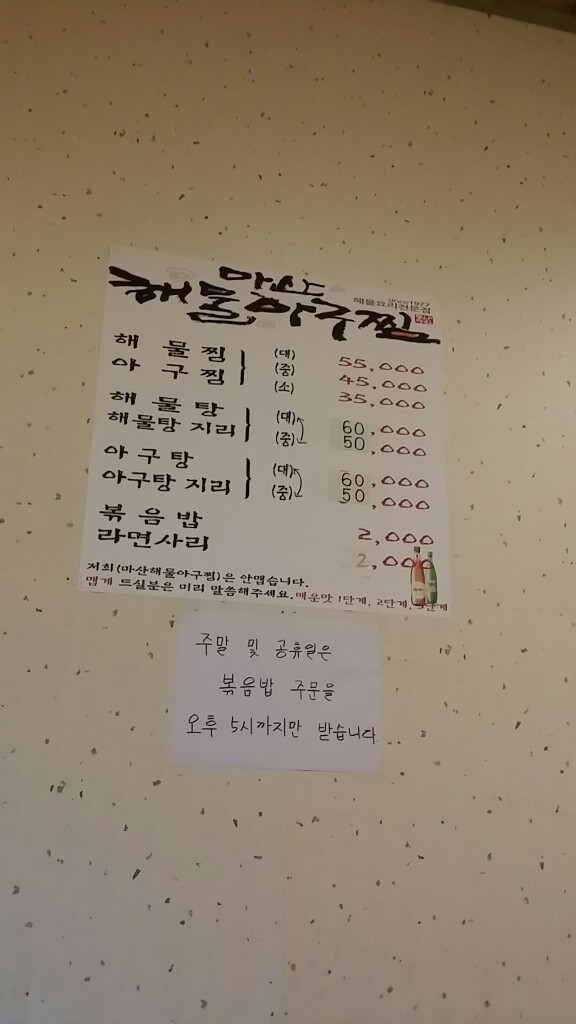 마산
해물아구찜
since1977
해물요리전문점
해 물 찜 (대) 55,000
아 구 찜 (중) 45,000
(소) 35,000
해 물 탕 (대) 60,000
해물탕 지리 (중) 50,000
아 구 탕 (대) 60,000
아구탕 지리 (중) 50,000
볶 음 밥 2,000
라면사리 2,000
저희(마산해물아구찜)은 안맵습니다.
맵게 드실분은 미리 말씀해주세요. 매운맛 1단계, 2단계, 3단계
주말 및 공휴일은
볶음밥 주문을
오후 5시까지만 받습니다